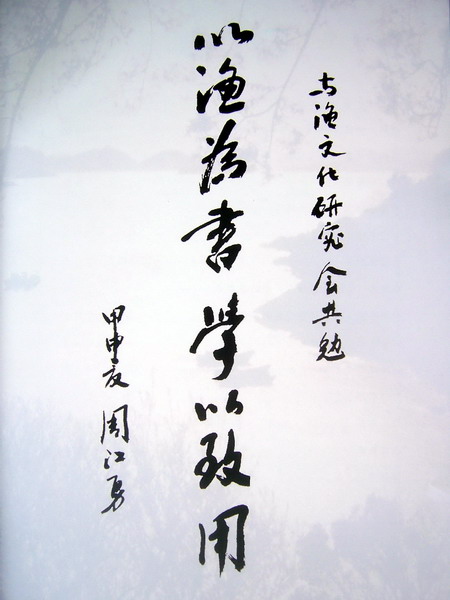 与渔文化研究会共勉
以渔为書學以致用
甲申夏 周江勇